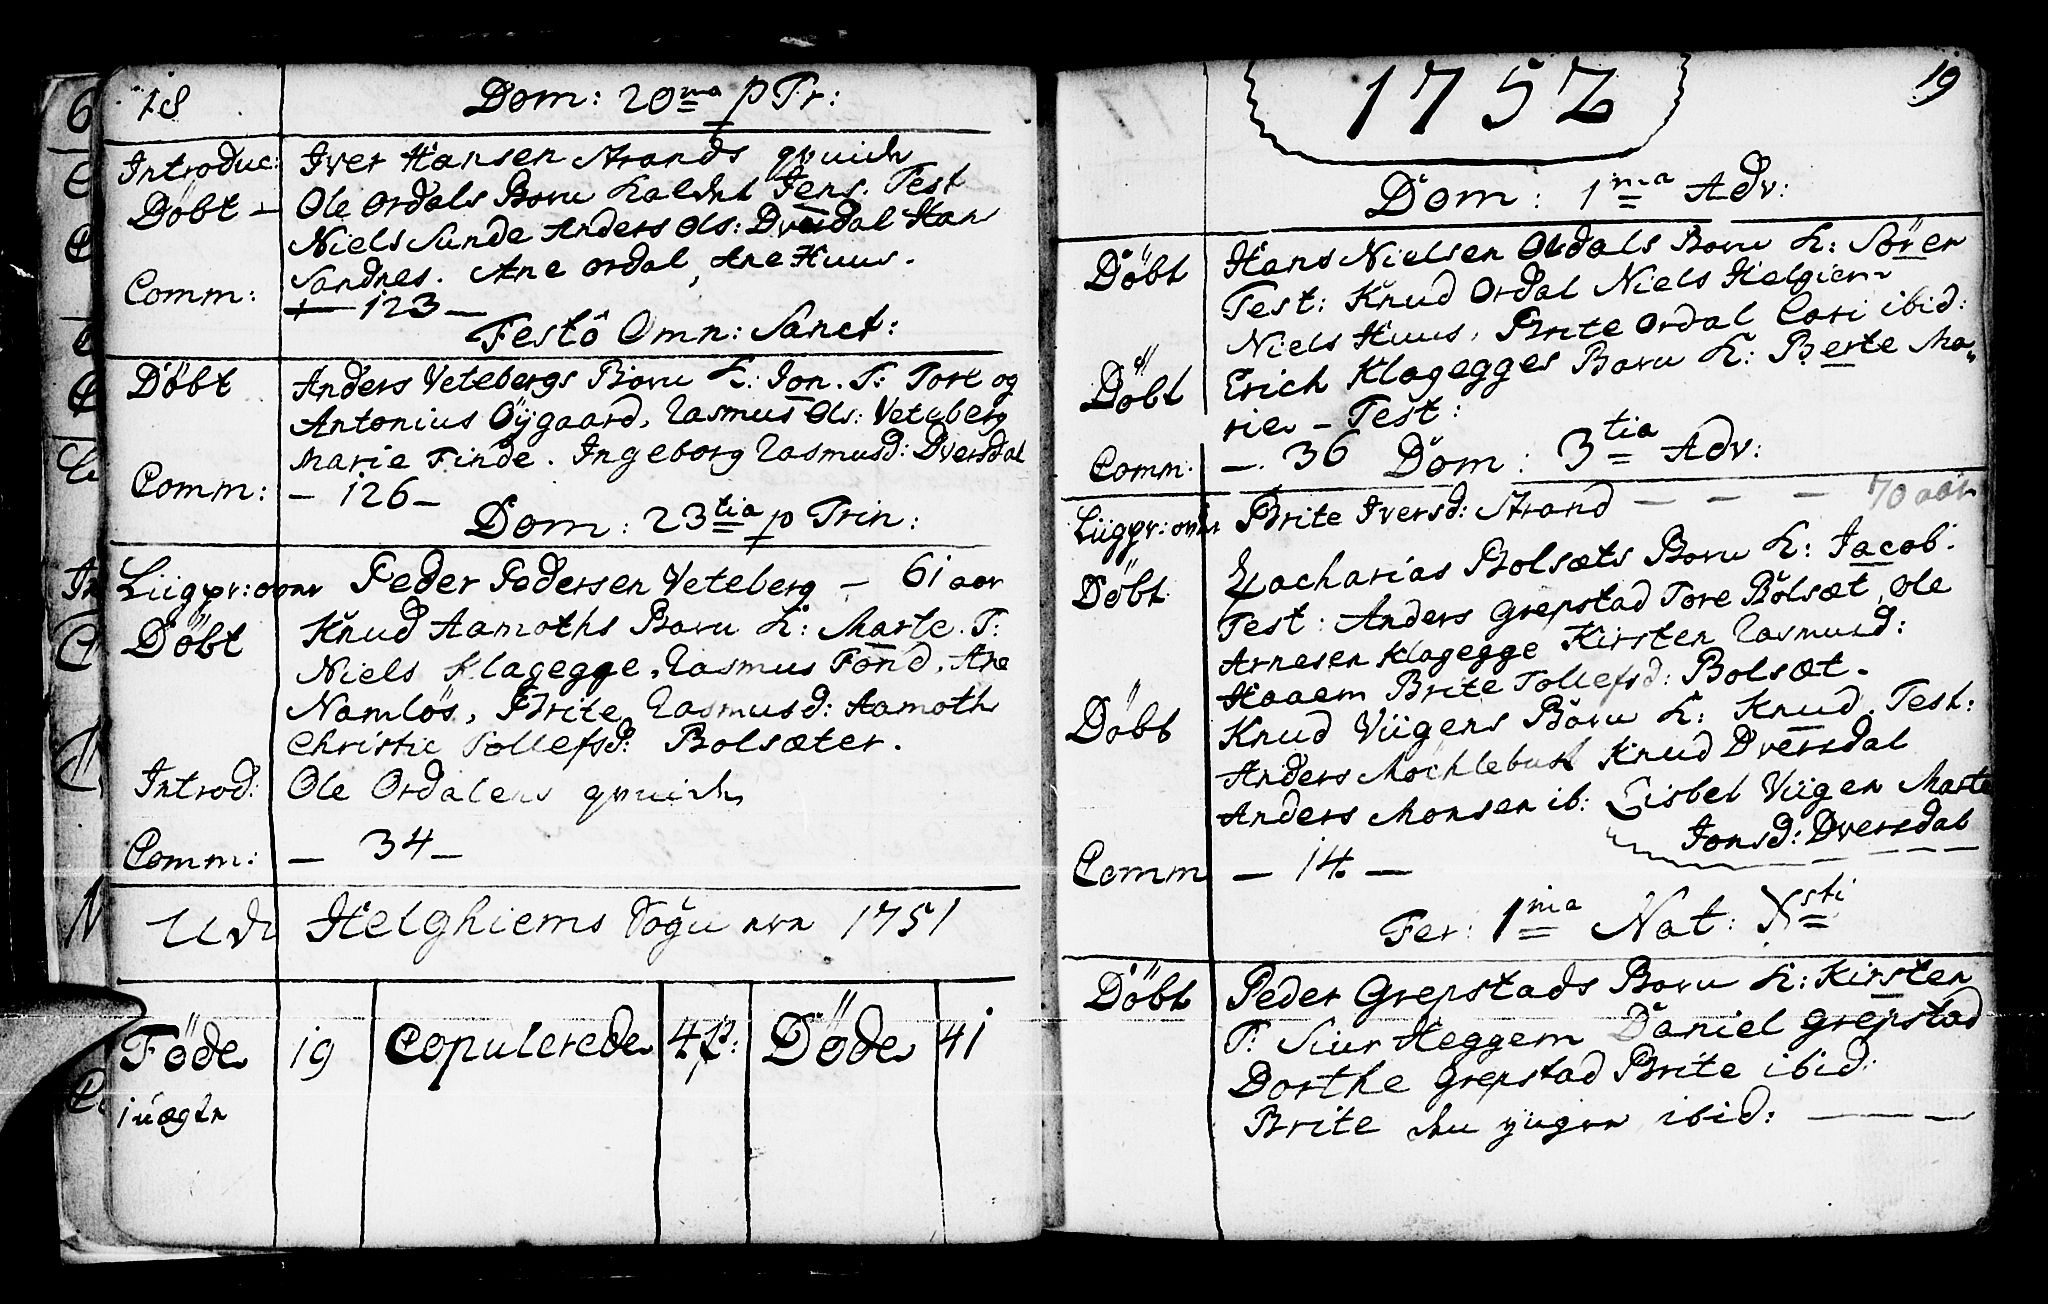 18
Dom: 20ma p Tr:
Introduc: Iver Hansen Strands qvinde
Døbt – Ole Ordals Barn kaldet Jens. Test
Niels Sunde Anders Ols: Dversdal Han
Sandnes. Ane Ordal, Ane Huus.
Comm: – 123 –
Festô Omn: Sanct:
Døbt Anders Vetebergs Barn K: Jon. T: Tort og
Antonius Öygaard, Rasmus Ols: Veteberg
Marie Finde. Ingeborg Rasmusd: Dversdal
Comm: – 126 –
Dom: 23tia p Trin:
Liigpr: over Peder Pedersen Veteberg – 61 aar
Döbt Knud Aamoths Barn K: Marte. T:
Niels Klagegge, Rasmus Fönd, Ane
Namlös, Brite Rasmusd: Aamoth
Christie Tollefsd: Bolsæter.
Introd: Ole Ordalens qvinde
Comm: – 34 –
Udi Helghiems Sogn 1751
Föde 19 Copulerede 4 p: Döde 41
1 uægte
19
1752
Dom: 1ma Adv:
Döbt Hans Nielsen Ordals Barn K: Sören
Test: Knud Ordal Niels Helgiem
Niels Huus, Brite Ordal Cari ibid:
Döbt Erich Klagegges Barn K: Berte Ma-
rie – Test:
Comm: – 36 Dom: 3tia Adv:
Liigpr: over Brite Iversd: Strand – – – 70 aar
Döbt Zacharias Bolsæts Barn K: Jacob.
Test: Anders Grepstad Tore Bolsæt, Ole
Arnesen Klagegge Kirsten Rasmusd:
Haaem Brite Tollefsd: Bolsæt.
Döbt Knud Viigens Barn K: Knud. Test:
Anders Möchlebust Knud Dversdal
Anders Monsen ib: Lisbet Viigen Marte
Jonsd: Dversdal
Comm – 14 –
Fer: 1ma Nat: Xsti
Döbt Peder Grepstads Barn K: Kirsten
T: Siur Heggem Daniel Grepstad
Dorthe Grepstad Brite ibid:
Brite den yngre ibid: – – –